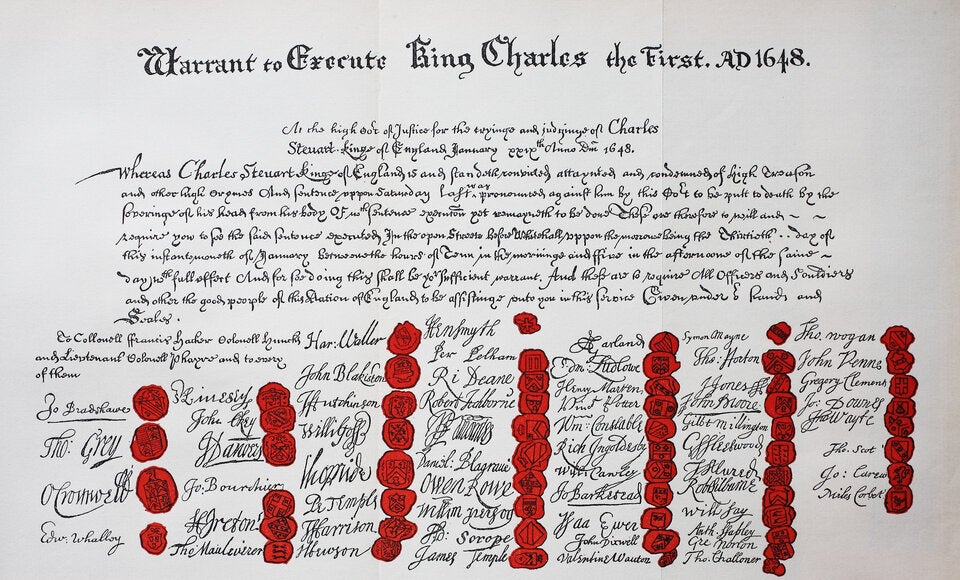 Warrant to Execute King Charles the First. AD 1648.
At the high Cort of Justice for the tryinge and iudginge of Charles
Steuart Kinge of England January xxixth Anno Dm 1648.
Whereas Charles Steuart Kinge of England is and standeth convicted attaynted and condemned of High Treason
and other high Crymes And sentence uppon Saturday last was pronounced against him by this Cort to be putt to death by the
severinge of his head from his body Of wch sentence execucon yet remayneth to be done These are therefore to will and
require you to see the said sentence executed In the open Streete before Whitehall uppon the morrowe being the Thirtieth day of
this instante moneth of January betweene the houres of Tenn in the morninge and Five in the afternoone of the same
day wth full effect And for soe doing this shall be yor sufficient warrant. And these are to require All Officers and Souldiers
and other the good people of this Nation of England to be assistinge unto you in this service Given under or hands and
Seales.
To Collonell Francis Hacker Colonell Huncks
and Lieutenant Colonell Phayre and to every
of them
Jo Bradshawe
Tho: Grey
O Cromwell
Edw. Whalley
John Okey
J Danvers
Jo: Bourchier
H Ireton
Tho Mauleverer
Har: Waller
John Blakiston
J Hutchinson
Willi Goffe
P Temple
T Harrison
J Hewson
Hen Smyth
Per Pelham
Ri Deane
Robert Tichborne
Daniel Blagrave
Owen Rowe
Ad: Scrope
James Temple
A Garland
Edm: Ludlowe
Henry Marten
Vinct Potter
Wm: Constable
Rich Ingoldesby
Will Cawley
Jo Barkstead
Isaa Ewer
John Dixwell
Valentine Wauton
Symon Mayne
Tho: Horton
J Jones
John Moore
Gilbt Millington
G Fleetwood
J Alured
Rob Lilburne
Will Say
Anth Stapley
Gre Norton
Tho Challoner
Tho: Wogan
John Venne
Gregory Clement
Jo: Downes
Tho Wayte
Tho: Scot
Jo: Carew
Miles Corbet